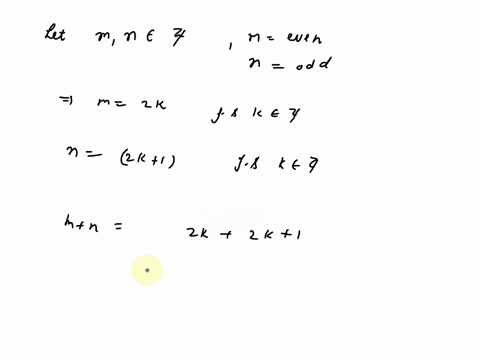 Let m, n ∈ ℤ , m = even
n = odd
⇒ m = 2k f.s k ∈ ℤ
n = (2k+1) f.s k ∈ ℤ
m+n = 2k + 2k + 1